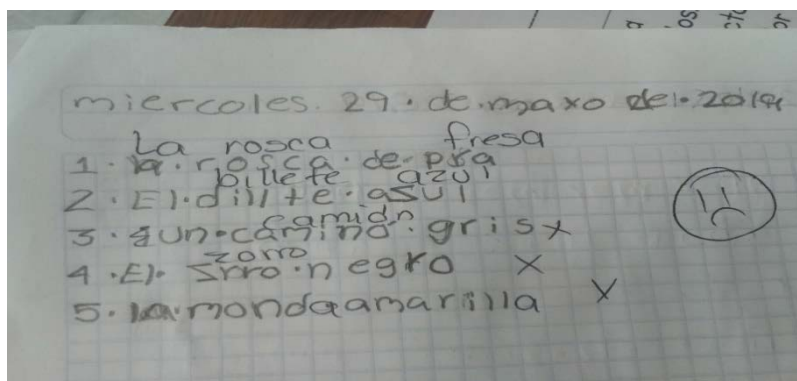 miercoles. 29. de. maxo del. 2019
La rosca fresa
1. la. rosca. de. pra
billete azul
2. El. dillte. asul
camión
3. gun. camino. gris x
zorro
4. El. Srro. negro x
5. la. mondaamarilla x